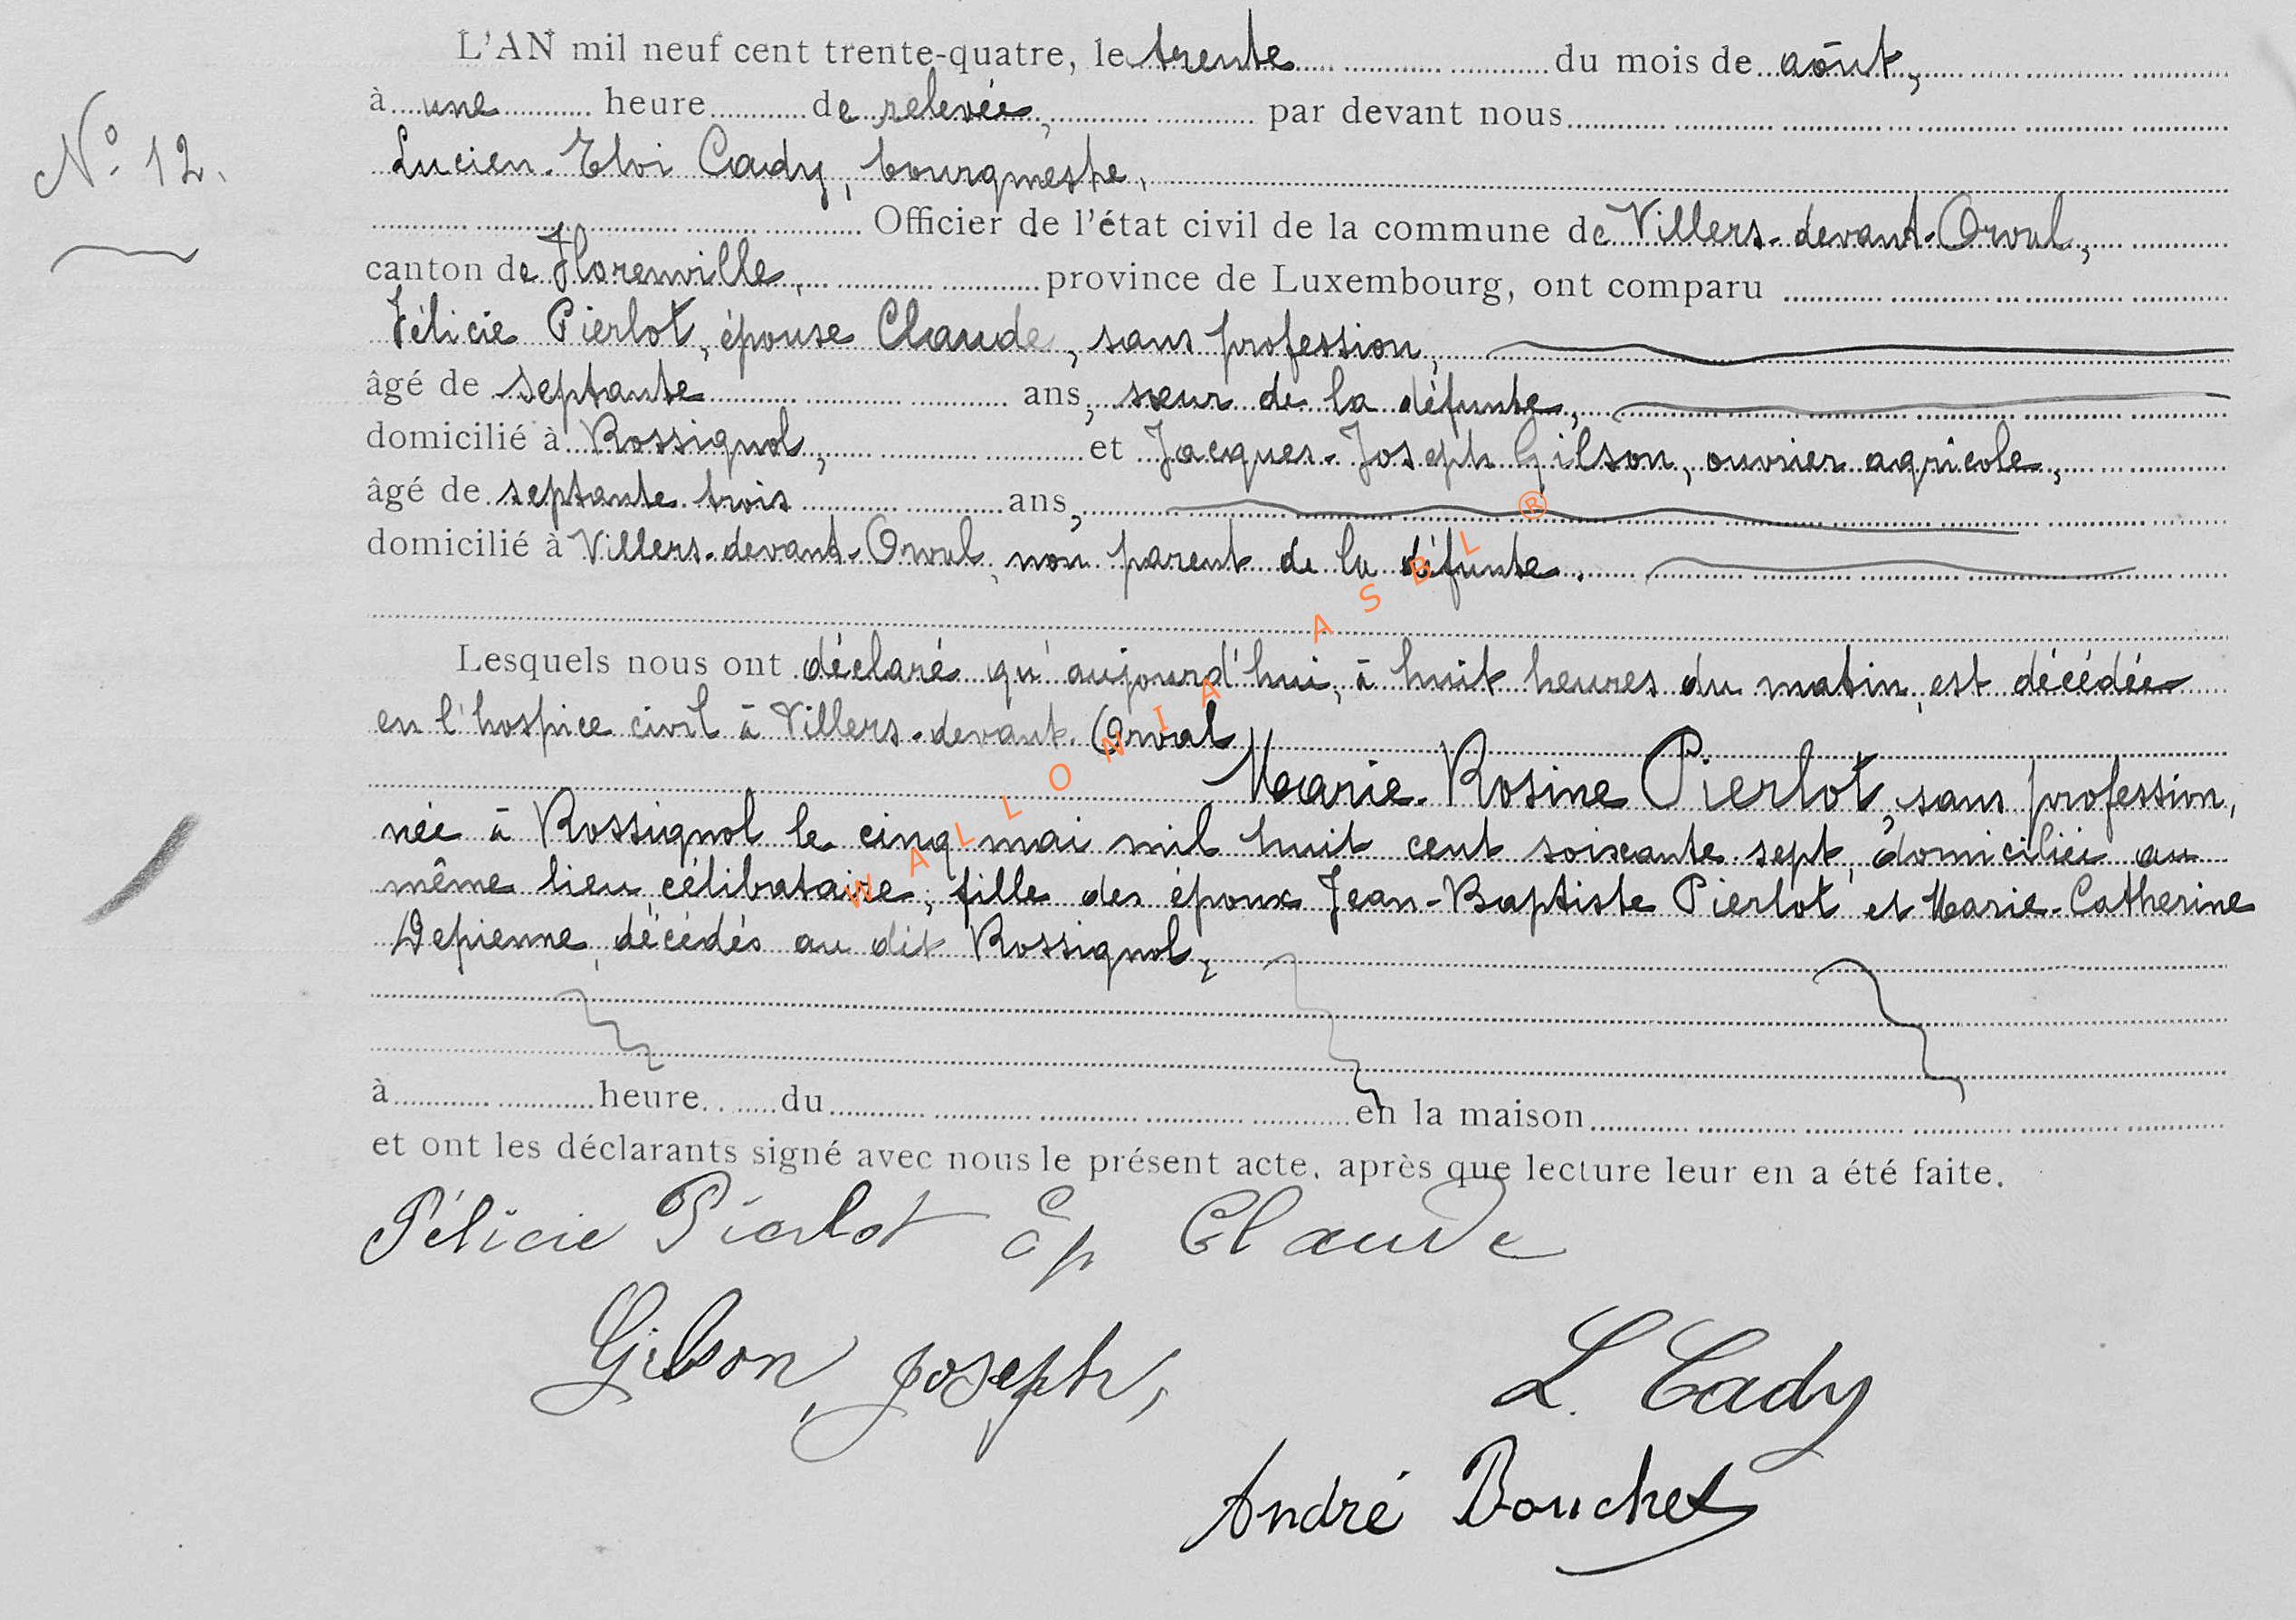 L'AN mil neuf cent trente-quatre, le trente du mois de août,
à une heure de relevée, par devant nous
N° 12.
Lucien-Eloi Cady, bourgmestre,
Officier de l'état civil de la commune de Villers-devant-Orval,
canton de Florenville, province de Luxembourg, ont comparu
Félicie Pierlot, épouse Claude, sans profession,
âgé de septante ans, sœur de la défunte,
domicilié à Rossignol, et Jacques-Joseph Gilson, ouvrier agricole,
âgé de septante trois ans,
domicilié à Villers-devant-Orval, non parent de la défunte.
Lesquels nous ont déclaré qu'aujourd'hui, à huit heures du matin, est décédée
en l'hospice civil à Villers-devant-Orval
Marie-Rosine Pierlot, sans profession,
née à Rossignol le cinq mai mil huit cent soixante sept, domiciliée au
même lieu, célibataire, fille des époux Jean-Baptiste Pierlot et Marie-Catherine
Depienne, décédés au dit Rossignol,
à heure du en la maison
et ont les déclarants signé avec nous le présent acte, après que lecture leur en a été faite.
Félicie Pierlot Ep Claude
Gilson, Joseph,
L. Cady
André Bouchet
WALLONIA ASBL ®